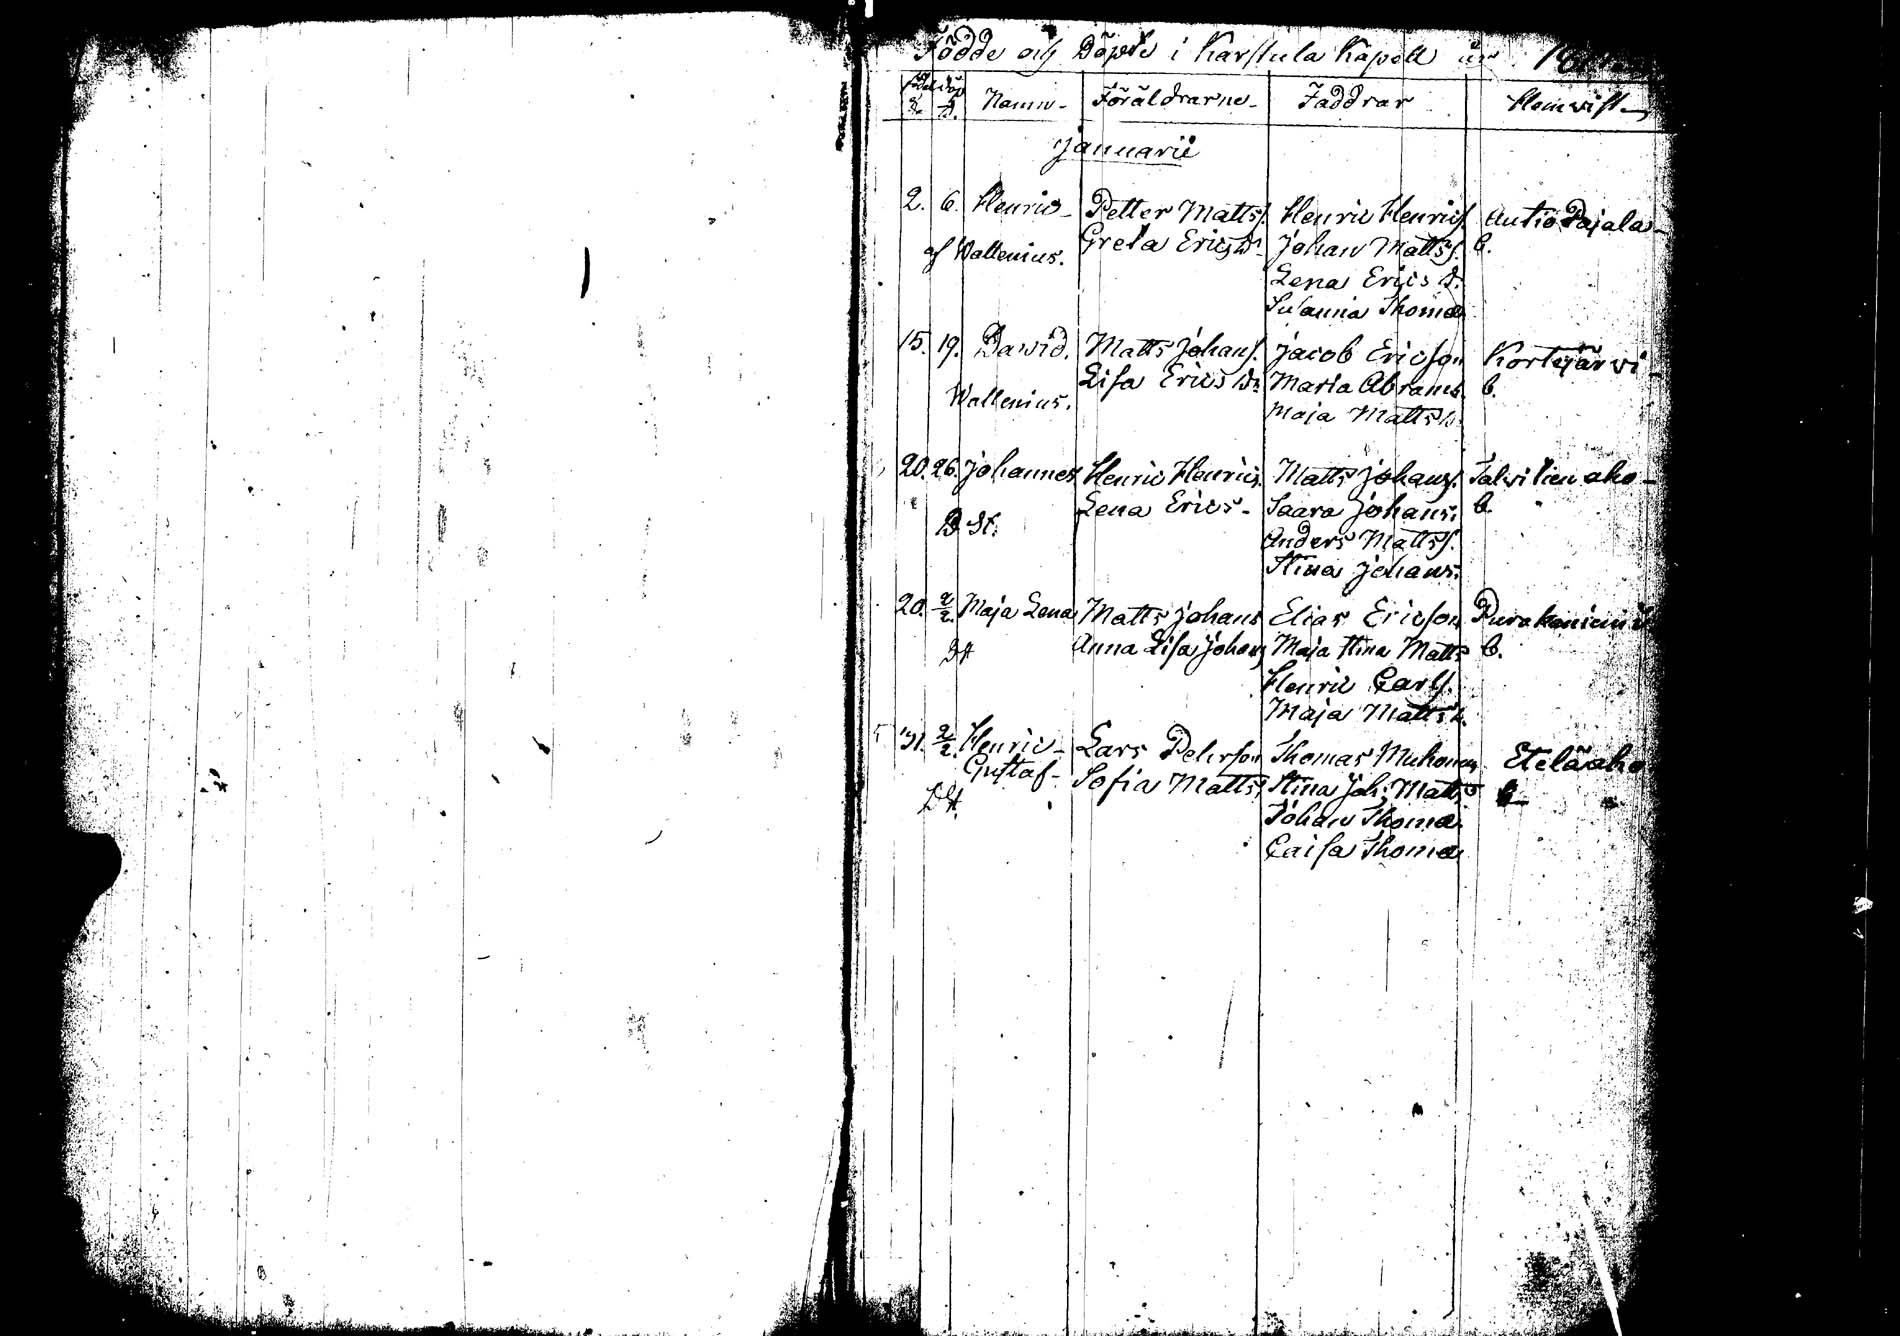 Födde och Döpte i Karstula Kapell år
Namn - Föräldrarne - Faddrar Hemvist -
Januarii
2. 6. Henric - Petter Matts. Henric Henrics. Autio Pajala -
af Wallenius. Greta Erics dr. Johan Matts. b.
Lena Erics d.
Susanna Thomæ
15. 19. David. Matts Johans. Jacob Ericson Kortejärvi -
Wallenius. Lisa Erics dr. Maria Abrams b.
Maja Matts d.
20. 26. Johannes Henric Henrics. Matts Johans. Talvitien aho -
D St. Lena Erics - Saara Johans. b.
Anders Matts.
Stina Johans.
20. 2/2. Maja Lena Matts Johans Elias Ericson
DSt Anna Lisa Johans Maja Stina Matts b.
Henric Carls.
Maja Matts d.
31. 2/2. Henric - Lars Peterson Thomas Muhonen Eteläaho
Gustaf - Sofia Matts. Stina Joh. Matts b
DSt. Johan Thomæ
Caisa Thomæ